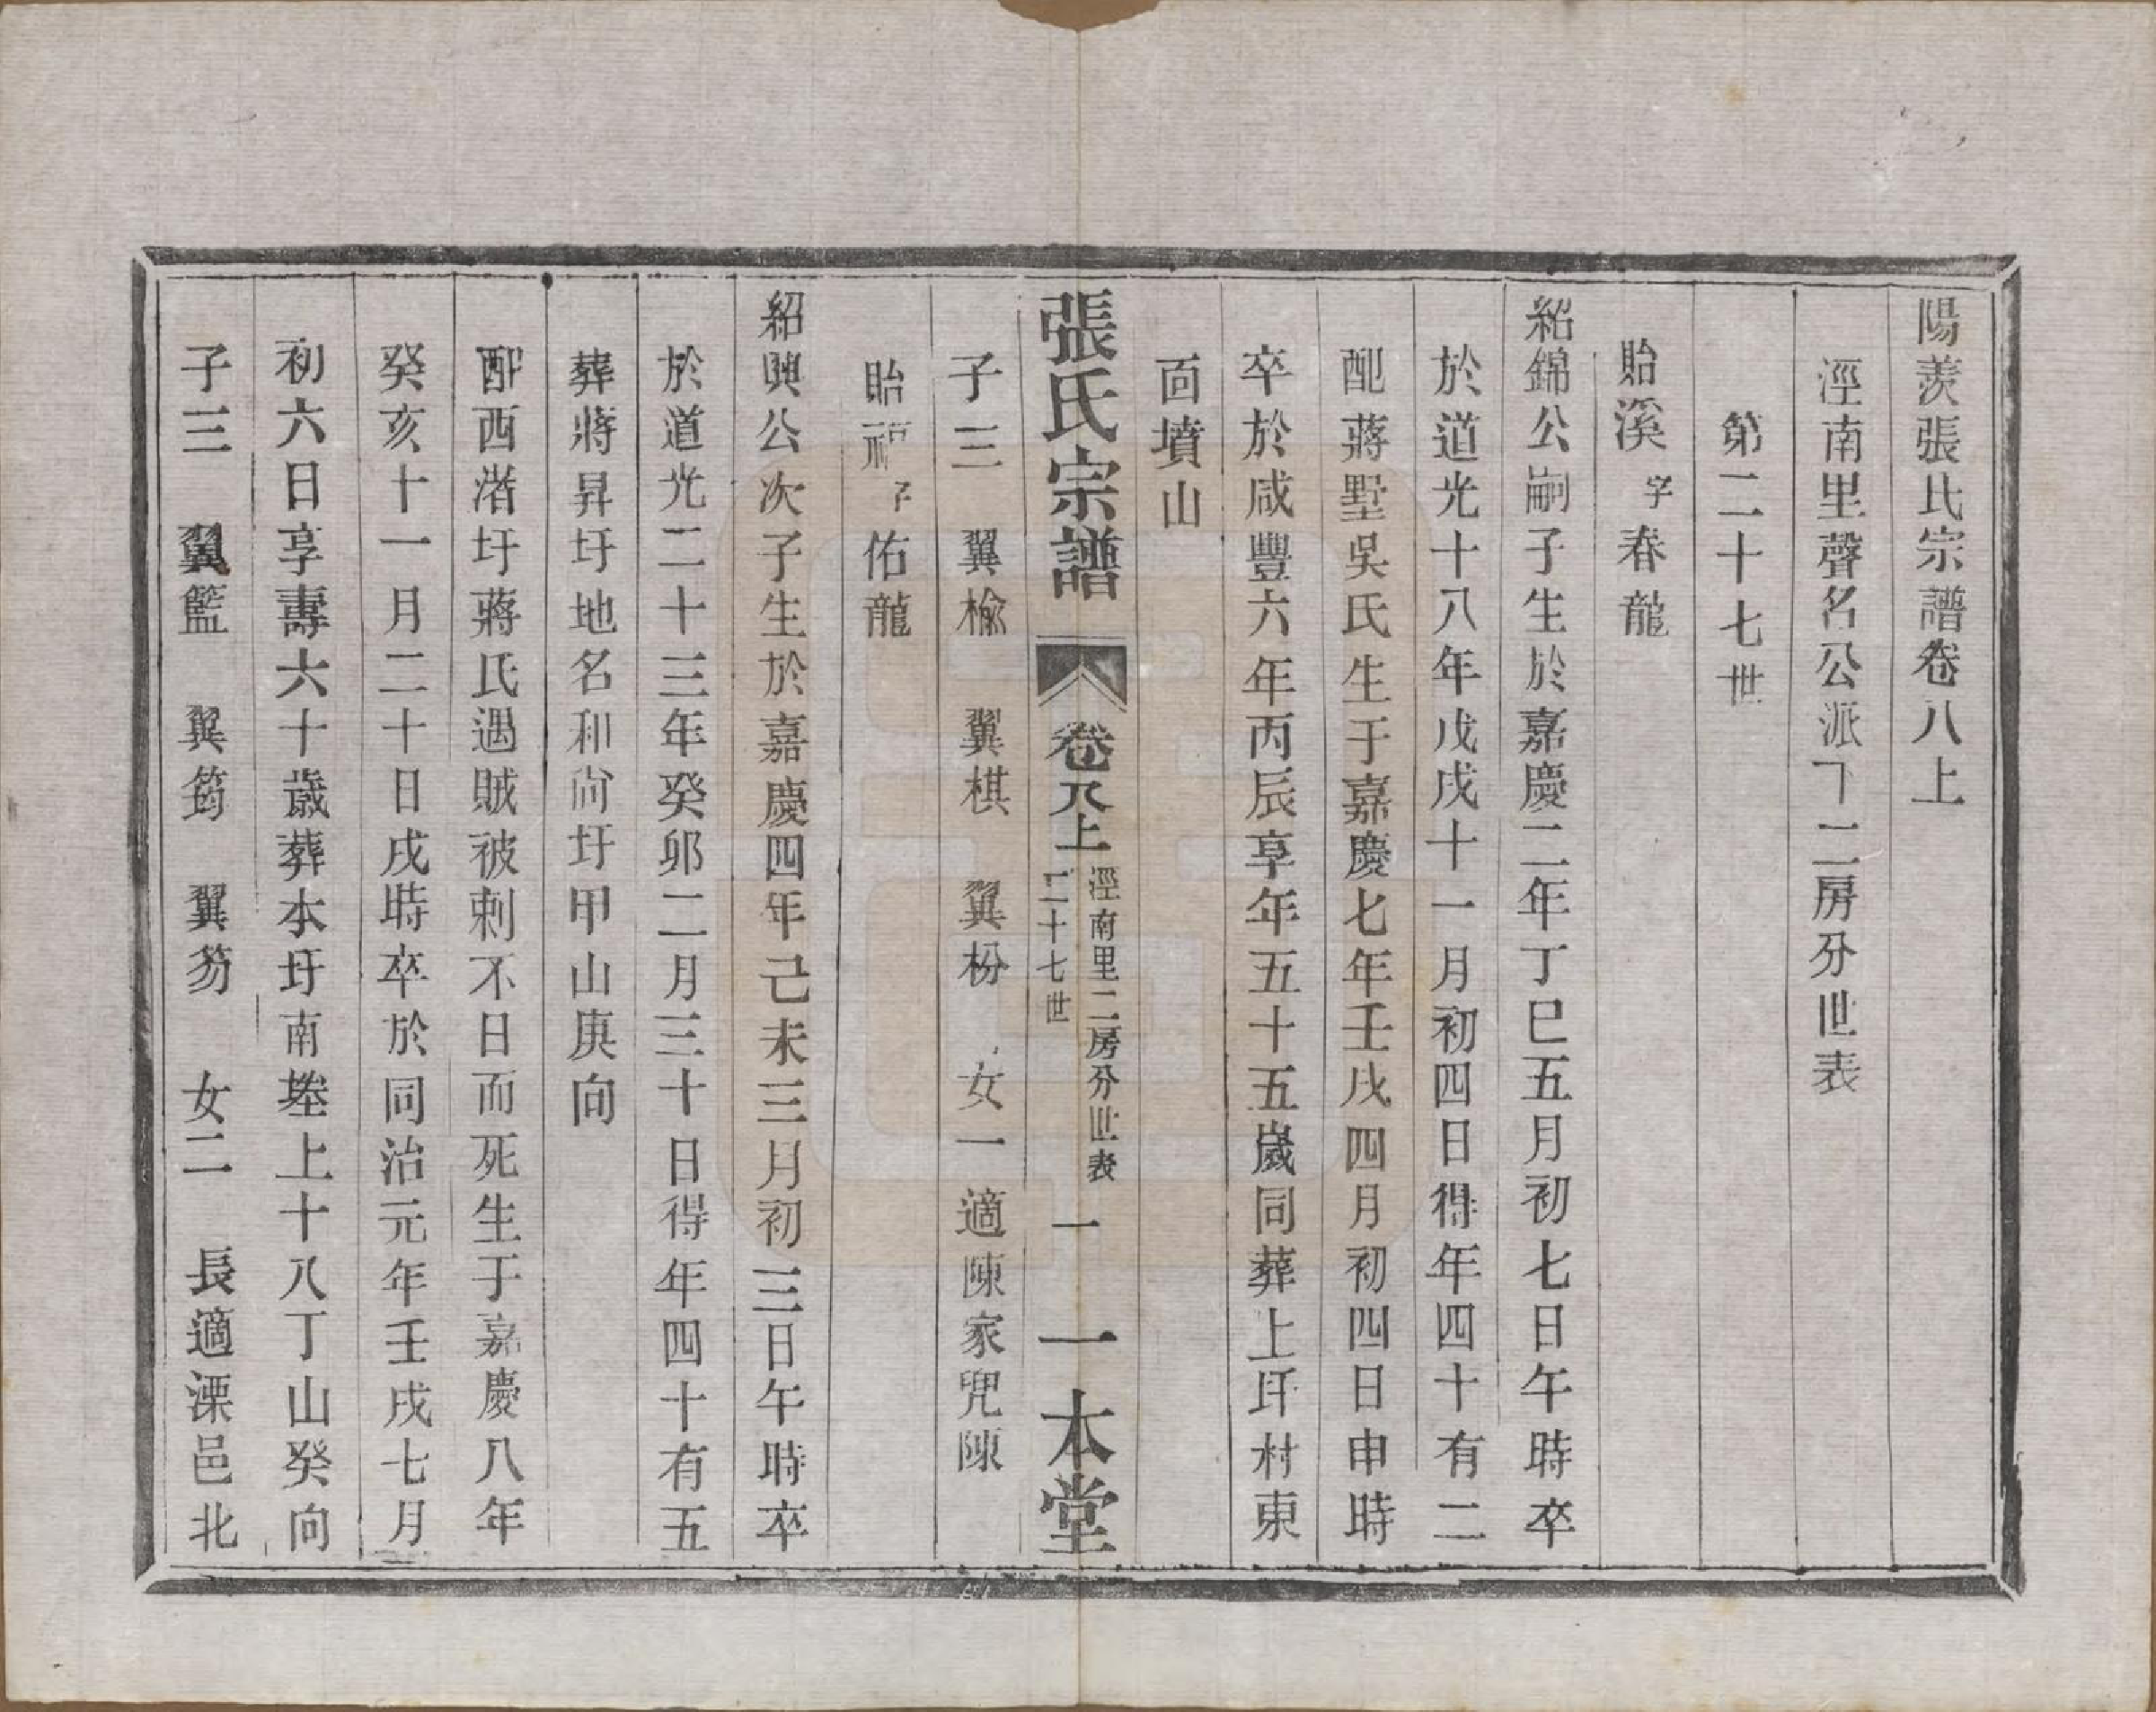 陽羨張氏宗譜卷八上
涇南里聲名公派下二房分世表
第二十七世
貽溪字春龍
紹錦公嗣子生於嘉慶二年丁巳五月初七日午時卒
於道光十八年戊戌十一月初四日得年四十有二
配蔣墅吳氏生于嘉慶七年壬戌四月初四日申時
卒於咸豐六年丙辰享年五十五歲同葬上圩村東
面墳山
張氏宗譜 卷八上 涇南里二房分世表 二十七世 一 一本堂
子三 翼榆 翼棋 翼枌 女一適陳家兜陳
貽福字佑龍
紹興公次子生於嘉慶四年己未三月初三日午時卒
於道光二十三年癸卯二月三十日得年四十有五
葬蔣昇圩地名和尙圩甲山庚向
配西渚圩蔣氏遇賊被刺不日而死生于嘉慶八年
癸亥十一月二十日戌時卒於同治元年壬戌七月
初六日享壽六十歲葬本圩南塋上十八丁山癸向
子三 翼籃 翼筠 翼笏 女二 長適溧邑北